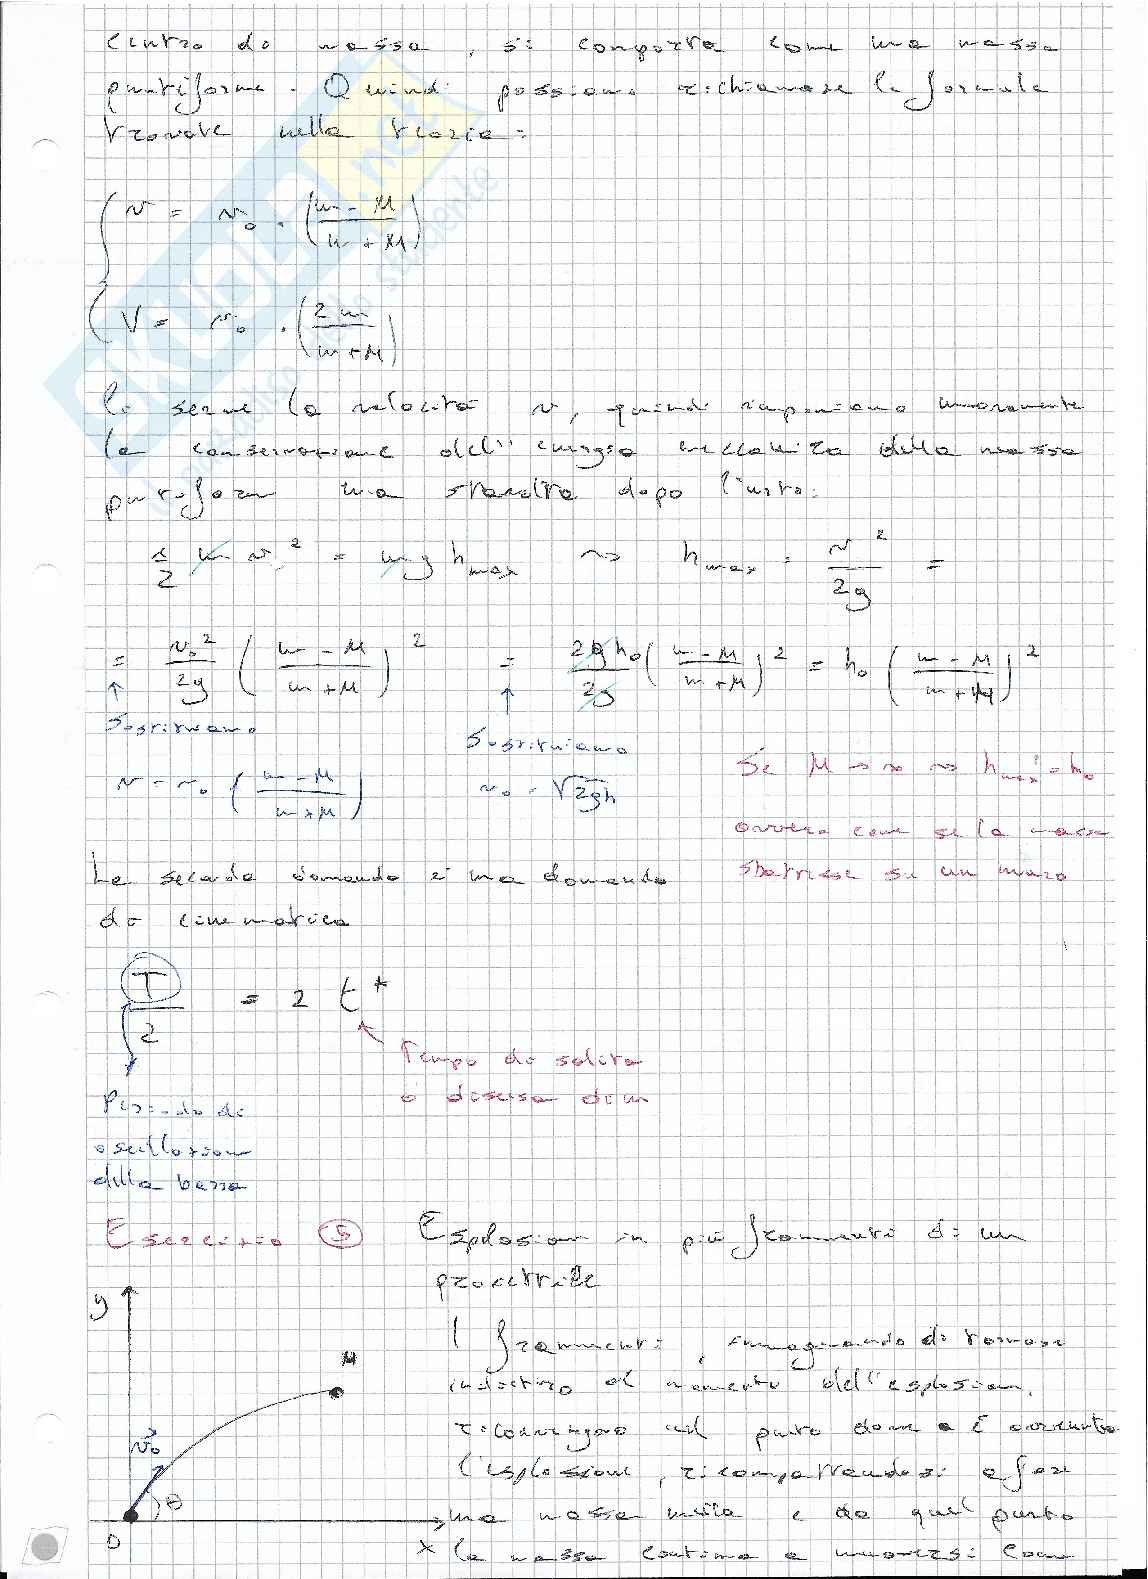 centro di massa, si comporta come una massa
puntiforme. Quindi possiamo richiamare le formule
trovate nella teoria:
v = v₀ · ((m - M)/(m + M))
V = v₀ · (2m/(m + M))
Ci serve la velocità v, quindi imponiamo nuovamente
la conservazione dell'energia meccanica della massa
puntiforme una volta dopo l'urto:
1/2 m v² = m g h_max ⇝ h_max = v²/2g =
= v₀²/2g ((m - M)/(m + M))² = 2g h₀/2g ((m - M)/(m + M))² = h₀ ((m - M)/(m + M))²
↑ ↑
Sostituiamo
Sostituiamo
v = v₀ ((m - M)/(m + M))
v₀ = √2gh
Se M → ∞ ⇝ h_max = h₀
ovvero come se la massa
sbattesse su un muro
La seconda domanda è una domanda
di cinematica
T/2 = 2 t*
Tempo di salita
o discesa di m
Periodo di
oscillazione
della barra
Esercizio 5 Esplosione in più frammenti di un
proiettile
I frammenti, immaginando di tornare
indietro al momento dell'esplosione,
riconvergono nel punto dove è avvenuta
l'esplosione, ricompattandosi a fare
una massa unita e da quel punto
la massa continua a muoversi come
y
M
v₀
θ
O
x
SKUOLA.net